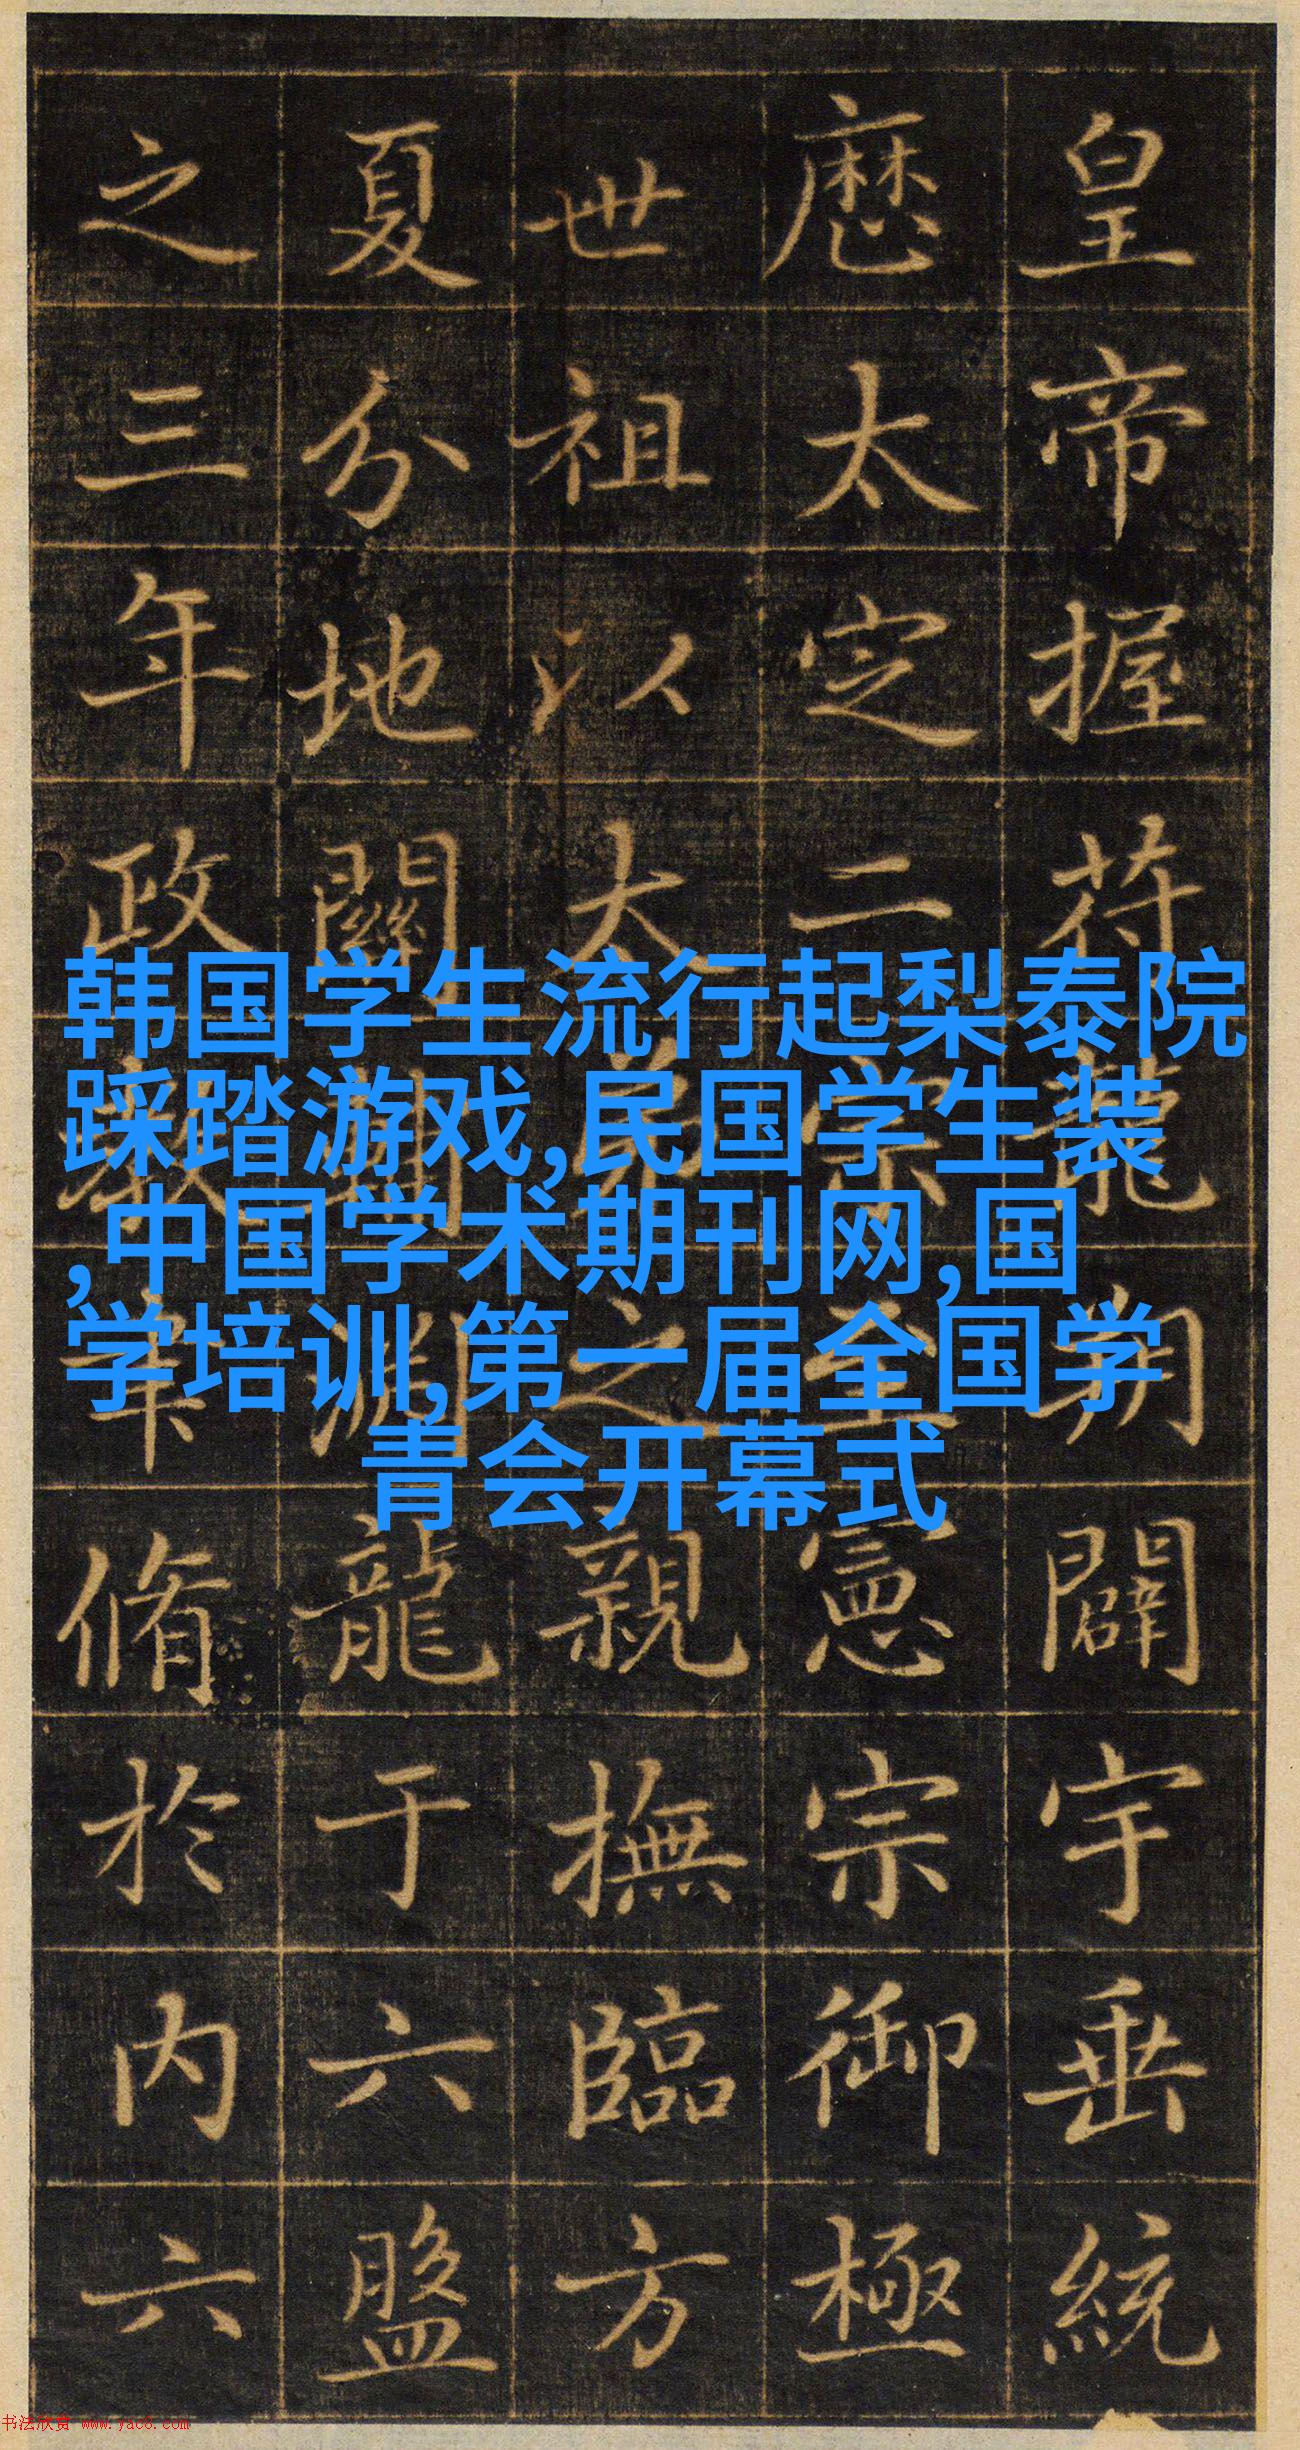 韩国学生流行起梨泰院
踩踏游戏,民国学生装
,中国学术期刊网,国
学培训,第一届全国学
青会开幕式
皇帝握苻龍朔闢宇垂統
厯太定二宗至憲宗御極
世祖以大弟之親撫臨方
夏分地關淵龍于六盤
之三年政教脩於内六
书法欣赏 www.yac8.com